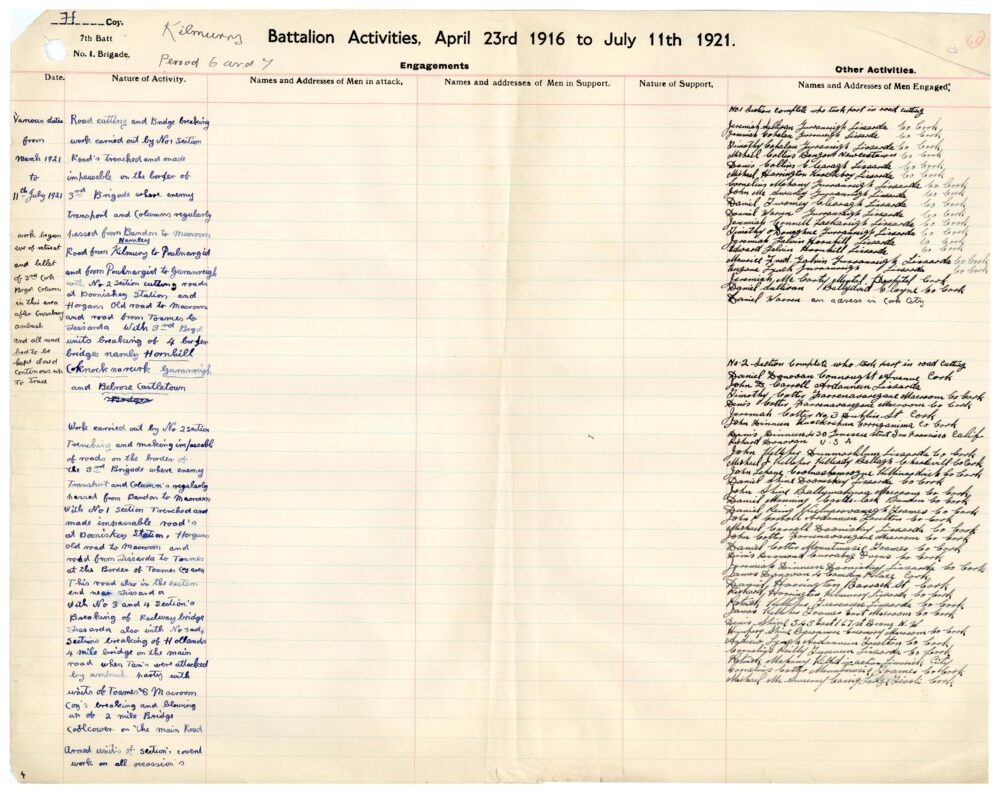 H Coy.
7th Batt
No. 1. Brigade.
Kilmurry
Period 6 and 7
Battalion Activities, April 23rd 1916 to July 11th 1921.
60
Engagements
Other Activities.
Date.
Nature of Activity.
Names and Addresses of Men in attack.
Names and addresses of Men in Support.
Nature of Support.
Names and Addresses of Men Engaged.
Various dates
from
March 1921
to
11th July 1921
work began
eve of retreat
and billet
of 3rd Cork
Brigd Column
in this area
after Crossbarry
ambush
and all road
had to be
kept closed
continous up
to Truce
Road cutting and Bridge breaking
work carried out by No1 Section
Road's Trenched and made
impassable on the border of
3rd Brigade where enemy
Transport and Columns regularly
passed from Bandon to Macroom
Namley
Road from Kilmurry to Poulnargid
and from Poulnargid to Gurranreigh
with No 2 Section cutting roads
at Dooniskey Station and
Horgans Old road to Macroom
and road from Toames to
Lissarda With 3rd Brigd
units breaking of 4 border
bridges namly Hornhill
Coknocknarurk Guranreigh
and Belrose Castletown
Bridges
Work carried out by No 2 Section
Trenching and making impassable
of roads on the border of
the 3rd Brigade where enemy
Transport and Column's regularly
passed from Bandon to Macroom
With No 1 Section Trenched and
made impassable road's
at Dooniskey Station, Horgans
old road to Macroom and
road from Lissarda to Toames
at the Border of Toames Coy area
This road also in the eastern
end near Lissarda
With No 3 and 4 Section's
Breaking of Railway bridge
Lissarda also with No 3 and 4
Sections breaking of Hollands
4 mile bridge on the main
road when Tan's were attacked
by ambush party with
units of Toames & Macroom
Coy's breaking and blowing
up of 2 mile Bridge
Coolcower on the main Road
Armed unit's of section's coverd
work on all occassion's
No1 Section complete who took part in road cutting
Jeremiah Sullivan Gurranreigh Lissarda Co Cork
Jeremiah Gurranreigh Lissarda Co Cork
Timothy Gurranreigh Lissarda Co Cork
Michael Collins Newcestown Co Cork
Denis Collins Clearagh Lissarda Co Cork
Michael Harrington Lissarda Co Cork
Cornelius Mahony Gurranreigh Lissarda Co Cork
John Mc Sweeny Gurranreigh Lissarda Co Cork
Daniel Twomey Clearagh Lissarda Co Cork
Daniel Warren Gurranreigh Lissarda Co Cork
Jeremiah Lissarda Co Cork
Timothy O Donoghue Gurranreigh Lissarda Co Cork
Jeremiah Galvin Hornhill Lissarda Co Cork
Edward Galvin Hornhill Lissarda Co Cork
Maurice Galvin Gurranreigh Lissarda Co Cork
Eugene Lynch Gurranreigh Lissarda Co Cork
Jeremiah Mc Carthy Mental Hospital Cork
Daniel Sullivan Cloyne Co Cork
Daniel Warren an adress in Cork City
No 2 Section complete who took part in road cutting
Daniel Donovan Connaught Avenue Cork
John D Carroll Ardanneen Lissarda
Timothy Cotter Macroom Co Cork
Denis Cotter Macroom Co Cork
Jeremiah Cotter No 3 Dublin St Cork
John Dinneen Co Cork
Denis Dinneen 430 Genessee Street San Francisco Calif
Richard Donovan U.S.A
John Kelleher Lissarda Co Cork
Michael J Kelleher Co Cork
John Co Cork
Daniel Shine Dooniskey Lissarda Co Cork
John Shine Macroom Co Cork
Daniel Manning Bandon Co Cork
Daniel Toames Co Cork
John P Carroll Ardanneen Co Cork
Michael Carroll Dooniskey Lissarda Co Cork
John Cotter Macroom Co Cork
Daniel Cotter Mountmusic Toames Co Cork
Denis Desmond Co Cork
Jeremiah Dinneen Dooniskey Lissarda Co Cork
James Donovan Place Cork
Daniel Harrington Barrack St Cork
Richard Harrington Kilmurry Lissarda Co Cork
Patrick Kelleher Lissarda Co Cork
James Kelleher Macroom Co Cork
Denis Shine 545 East 167 St Bronx N.Y.
Humphrey Shine Creamery Macroom Co Cork
Andrew Lynch Ardanneen Co Cork
Cornelius Kelly Lissarda Co Cork
Patrick Mahony Limerick City
Cornelius Cotter Mountmusic Toames Co Cork
Michael Mc Sweeney Lodge Tivoli Cork
4